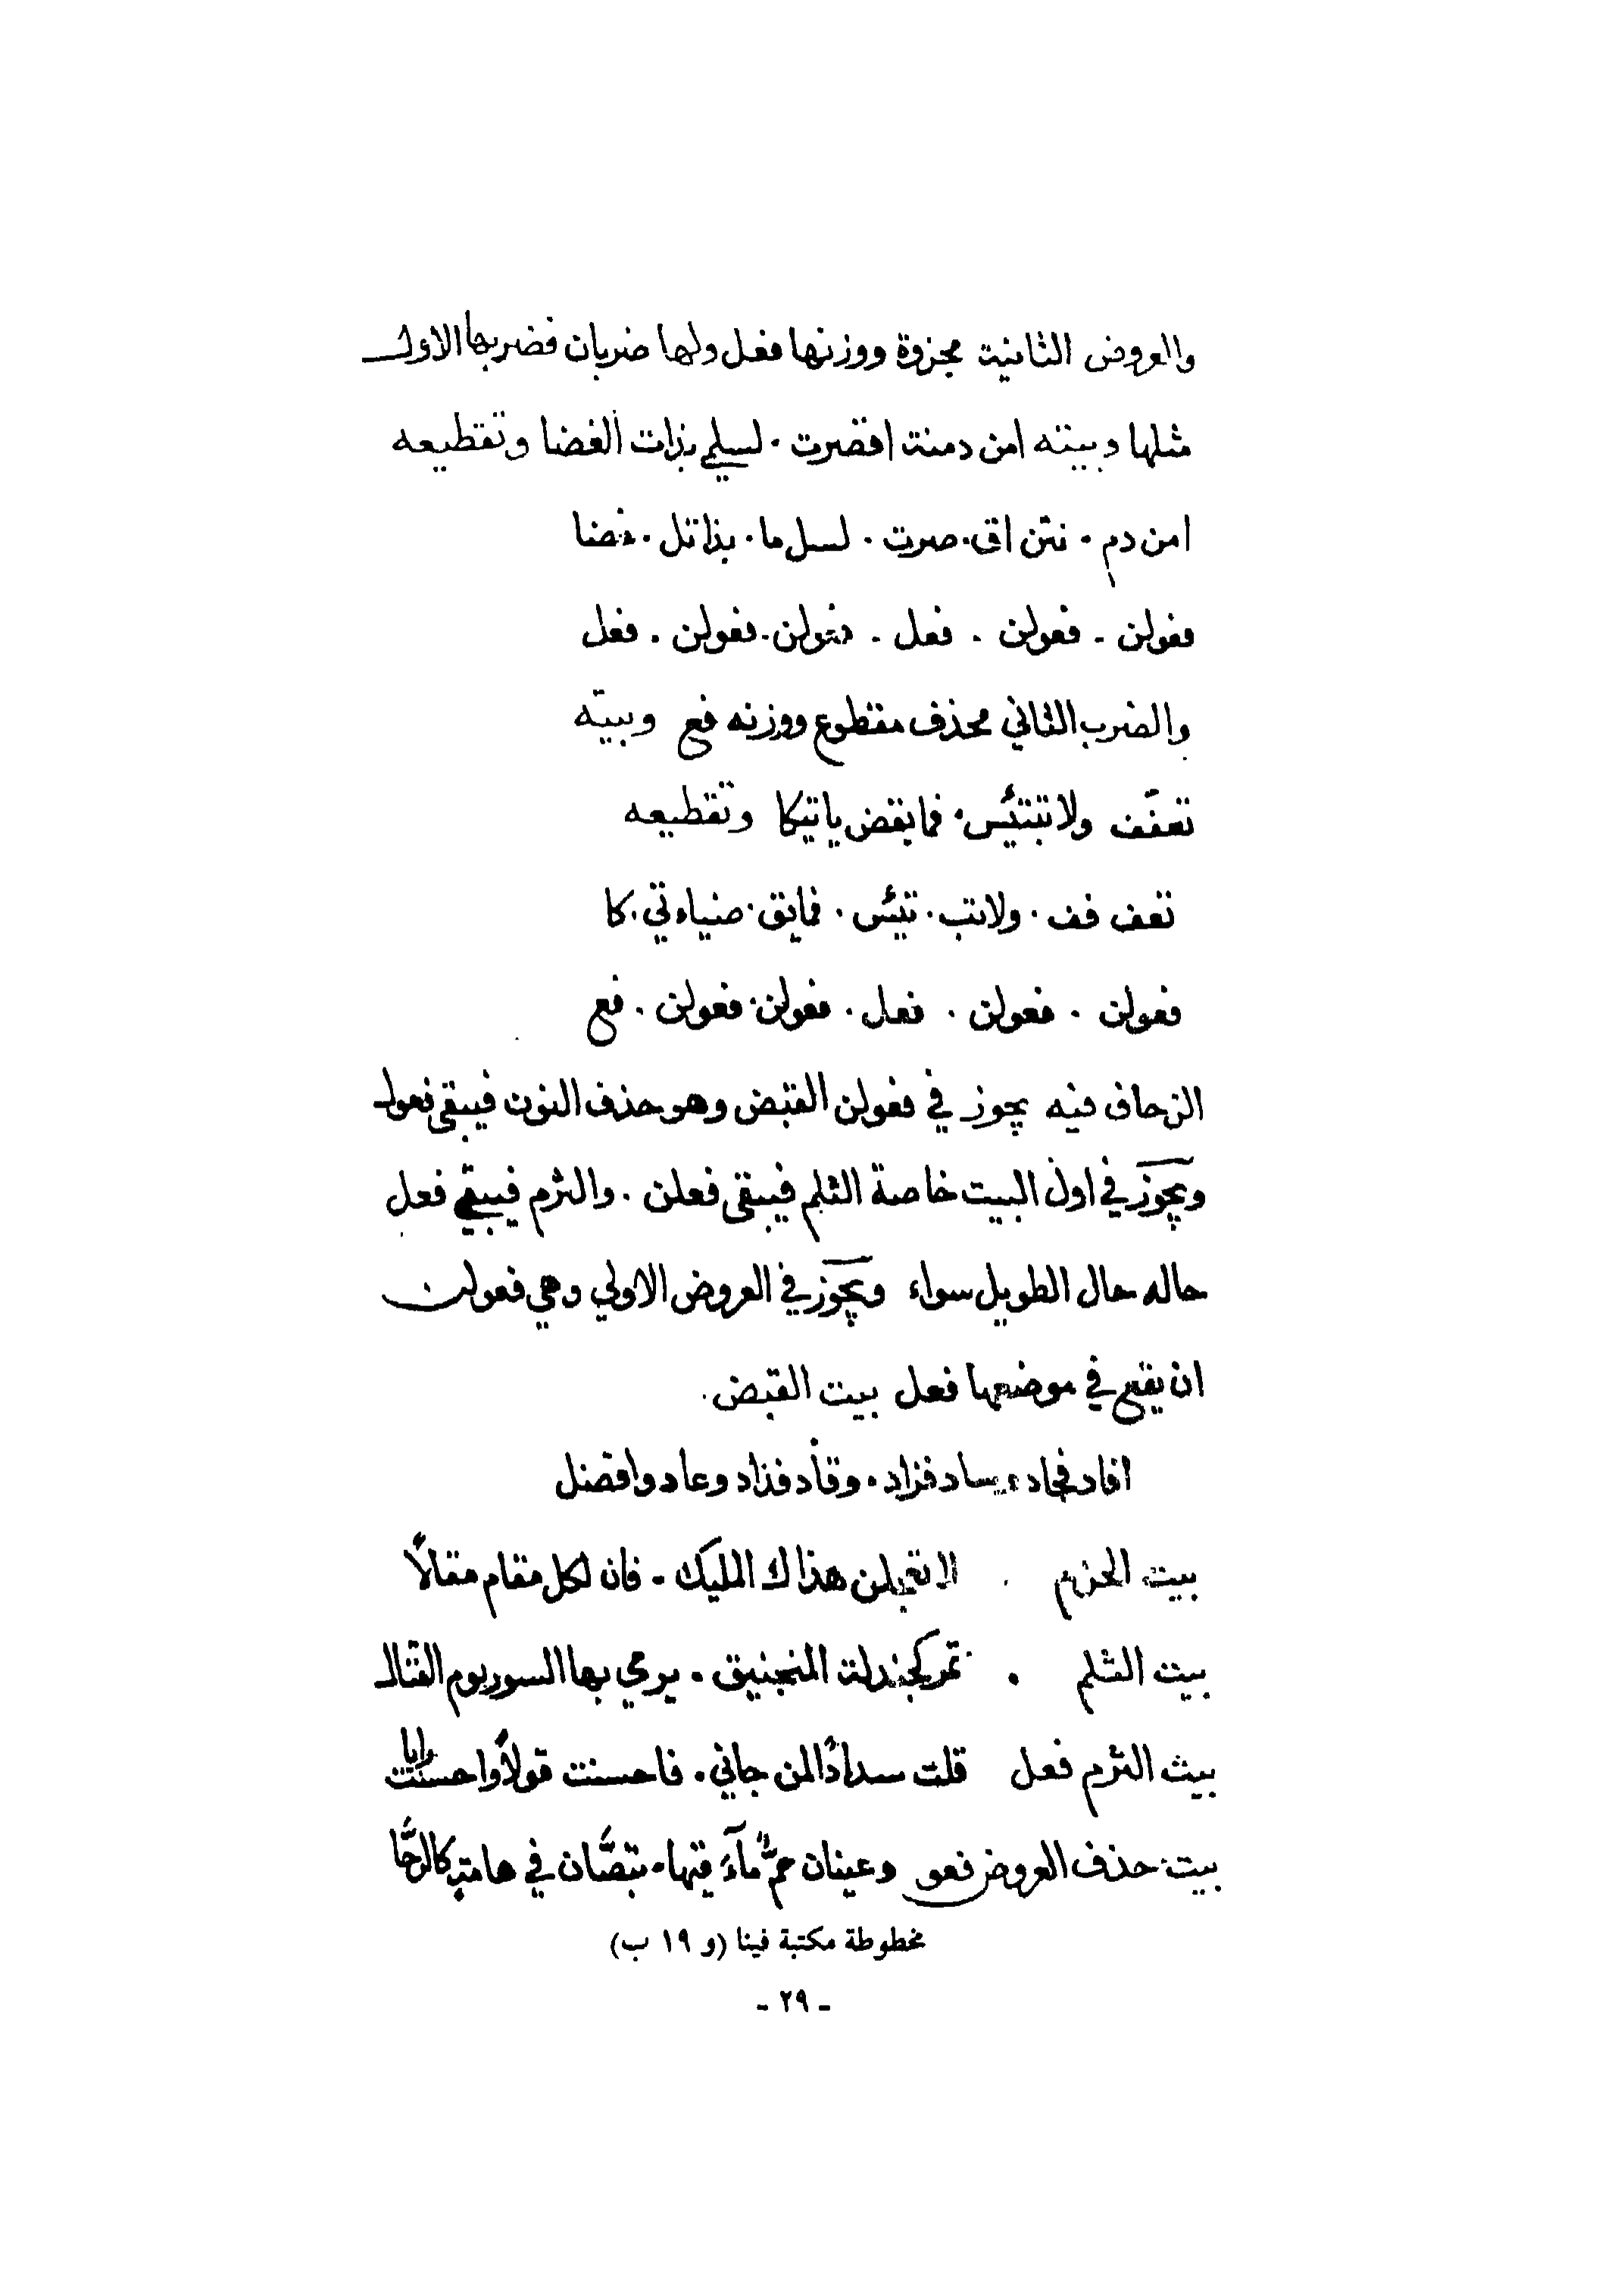 والعروض الثانية مجزوة ووزنها فعل ولها ضربان فضربها الاول
مثلها وبيته امن دمنة اقصرت . لسلمي بذات الغضا وتقطيعه
امن دم . نتن اق . صرت . لسل ما . بذاتل . غضا
فعولن . فعولن . فعل . فعولن . فعولن . فعل
والضرب الثاني محذف مقطوع ووزنه فع وبيته
تعفّف ولا تبتئس . فما يقض ياتيكا وتقطيعه
تعف فف . ولا تب . تئس . فما يق . ضياءتي . كا
فعولن . فعولن . فعل . فعولن . فعولن . فع
الزحاف فيه يجوز في فعولن القبض وهو حذف النون فيبقى فعول
ويجوز في اول البيت خاصة الثلم فيبقى فعلن . والثرم فيبقي فعل
حاله حال الطويل سواء ويجوز في العروض الاولي وهي فعولن
ان يقع في موضعها فعل بيت القبض .
افاد فجاد وساد فزاد . وقاد فزاد وعاد وافضل
بيت الخرم . لا تعجلن هذاك المليك . فان لكل مقام مقالاً
بيت الثلم . تمر كجندلة المنجنيق . يرمي بها السور يوم القتال
بيث الثرم فعل قلت سداداً لمن جاني . فاحسنت قولاً واحسنت رايا
بيت حذف العروض فعو وعينان حمٌّ مآء قيها . تبصّان في هامة كالرحّا
مخطوطة مكتبة فينا (و ١٩ ب)
- ٢٩ -